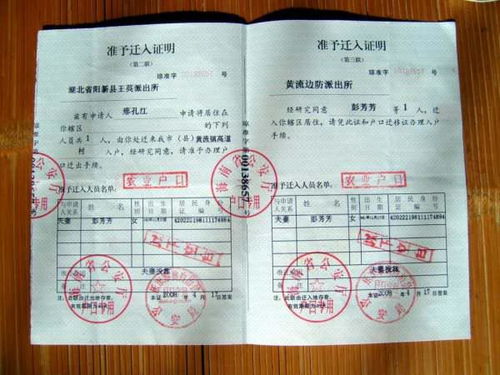 准予迁入证明
(第二联)
琼准字 号
湖北省阳新县王英派出所
兹有申请人 邢孔江 申请将居住在
你辖区 的下列
人员共 1 人，由你处迁来我市（县）黄流镇高道
村 入户，经研究同意，请准予办理户
口迁出手续。
农业户口
准予迁入人员名单：
与申请人关系 姓名 性别 出生日期 居民身份证编号
夫妻 彭芳芳 女
夫妻投靠
海南省公安厅
户口专用
注：此联由迁出地存查。
本证2008年4月17日签发
00138657
准予迁入证明
(第三联)
琼准字 号
黄流边防派出所
经研究同意 彭芳芳 等 1 人，迁
入你辖区居住，请凭此证和户口迁移证办理入户
手续。
农业户口
准予迁入人员名单：
与申请人关系 姓名 性别 出生日期 居民身份证编号
夫妻 彭芳芳 女
夫妻投靠
海南省公安厅
户口专用
注：此联由迁入地存查。
本证2008年4月17日签发